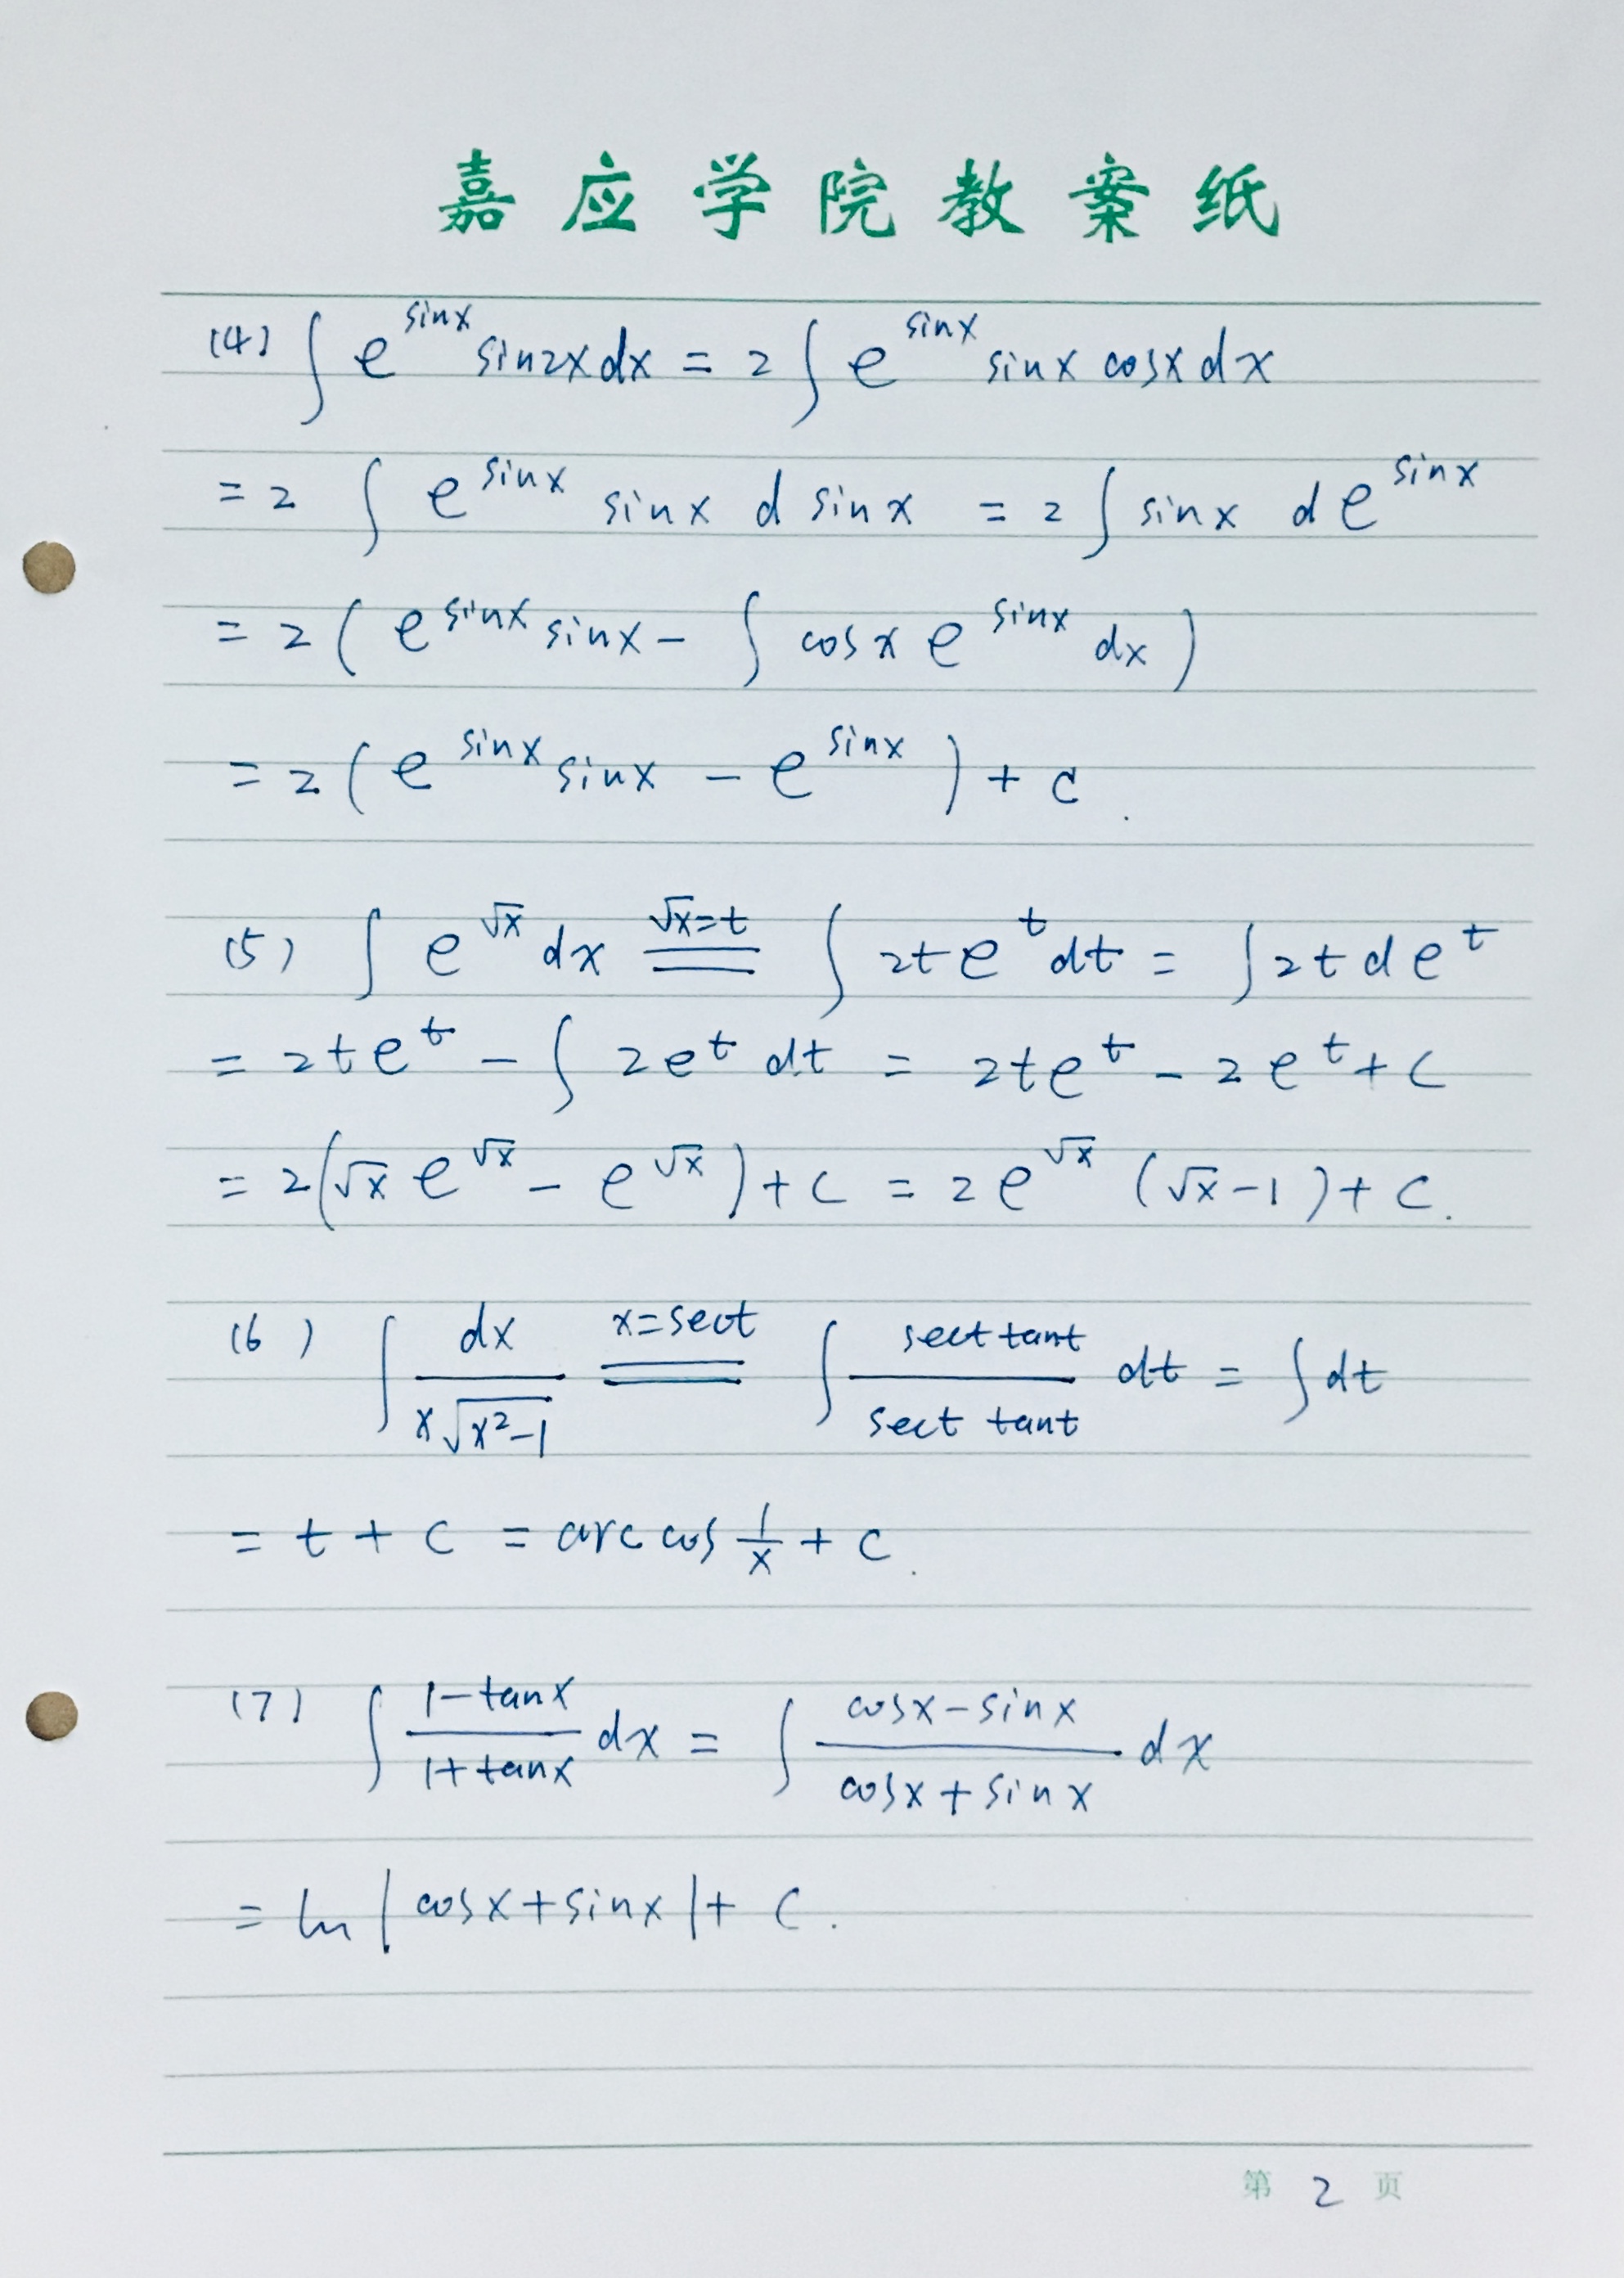 嘉应学院教案纸
(4) ∫ e^{sinx} sin2x dx = 2 ∫ e^{sinx} sinx cosx dx
= 2 ∫ e^{sinx} sinx d sinx = 2 ∫ sinx d e^{sinx}
= 2 ( e^{sinx} sinx - ∫ cosx e^{sinx} dx )
= 2 ( e^{sinx} sinx - e^{sinx} ) + c.
(5) ∫ e^{√x} dx \xlongequal{√x=t} ∫ 2t e^t dt = ∫ 2t d e^t
= 2t e^t - ∫ 2 e^t dt = 2t e^t - 2 e^t + C
= 2 ( √x e^{√x} - e^{√x} ) + C = 2 e^{√x} ( √x - 1 ) + C.
(6) ∫ \frac{dx}{x√{x²-1}} \xlongequal{x=sect} ∫ \frac{sect tant}{sect tant} dt = ∫ dt
= t + C = arc cos \frac{1}{x} + C.
(7) ∫ \frac{1-tanx}{1+tanx} dx = ∫ \frac{cosx-sinx}{cosx+sinx} dx
= ln | cosx + sinx | + C.
第 2 页